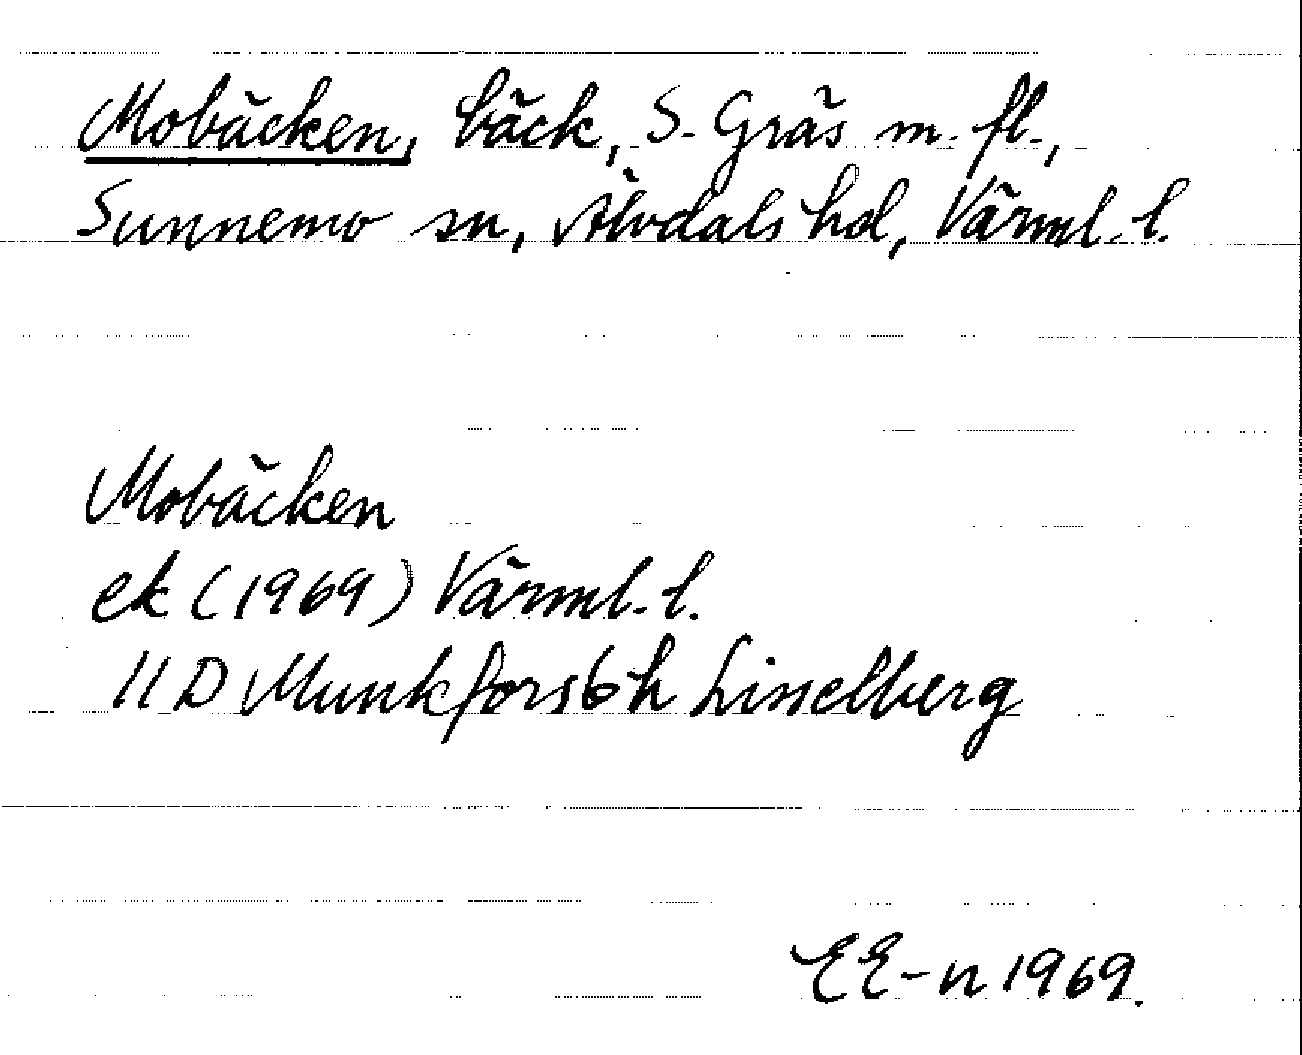 Mobäcken, bäck, S. Gräs m. fl.,
Sunnemo sn, Älvdals hd, Värml. l.
Mobäcken
ek (1969) Värml. l.
11D Munkfors 6h Lisselberg
EE-n 1969.